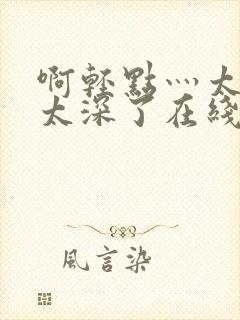 啊輕點灬太
太深了在綫
風言染